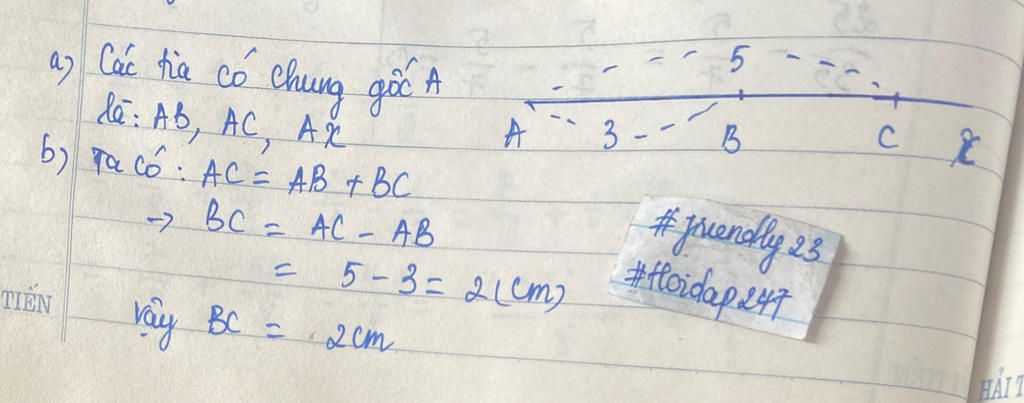 a) Các tia có chung gốc A
là: AB, AC, Ax
b) Ta có: AC = AB + BC
→ BC = AC - AB
= 5 - 3 = 2 (cm)
Vậy BC = 2cm
5
A 3 B C x
#friendly23
#Hoidap247
TIẾN
HẢI T